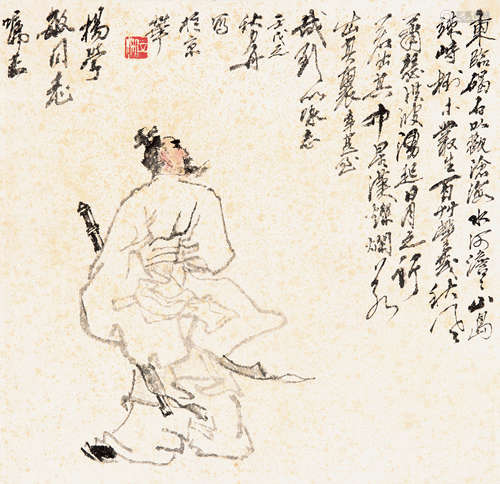 東臨碣石以觀滄海水何澹〻山島
竦峙樹木叢生百草豐茂秋風
蕭瑟洪波湧起日月之行
若出其中星漢燦爛若
出其裏幸甚至
哉歌以詠志
壬戌之
秋
寫
於京
華
楊
敏同志
囑正